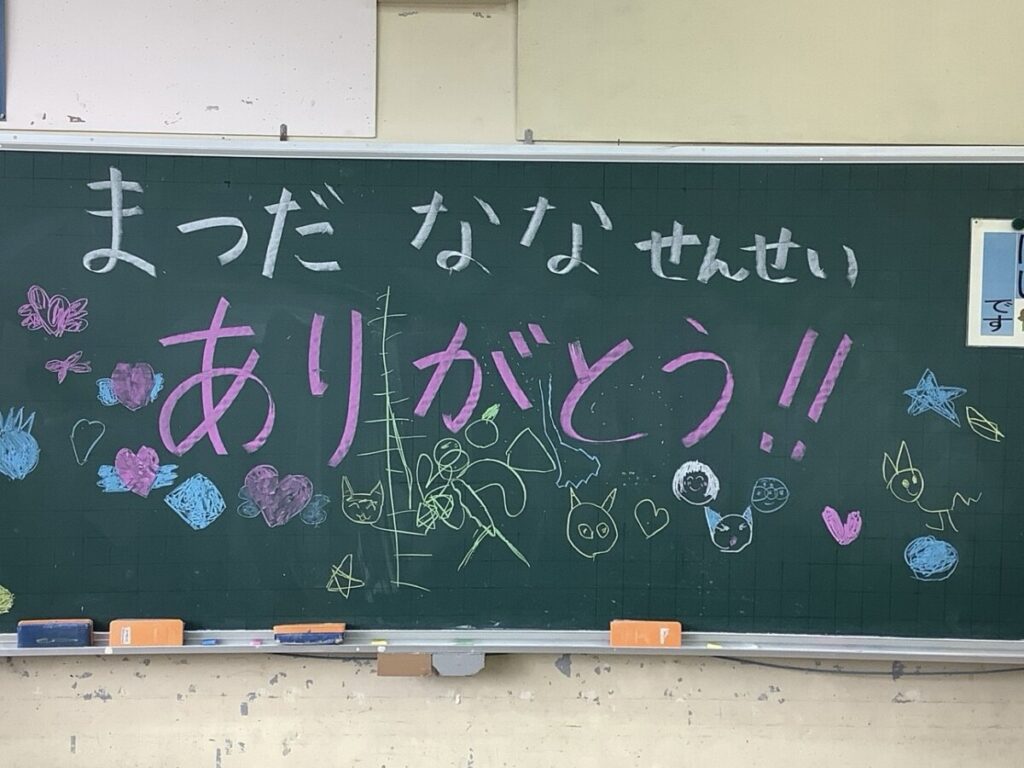 まつだ なな せんせい
ありがとう!!
です